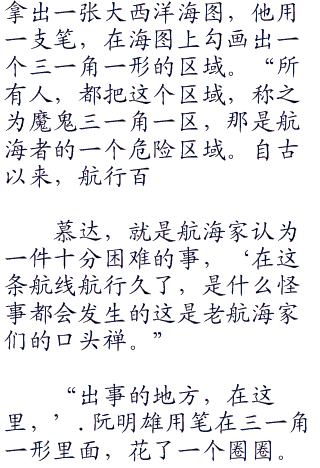 拿出一张大西洋海图，他用
一支笔，在海图上勾画出一
个三一角一形的区域。“所
有人，都把这个区域，称之
为魔鬼三一角一区，那是航
海者的一个危险区域。自古
以来，航行百
慕达，就是航海家认为
一件十分困难的事，‘在这
条航线航行久了，是什么怪
事都会发生的这是老航海家
们的口头禅。”
“出事的地方，在这
里，’．阮明雄用笔在三一角
一形里面，花了一个圈圈。